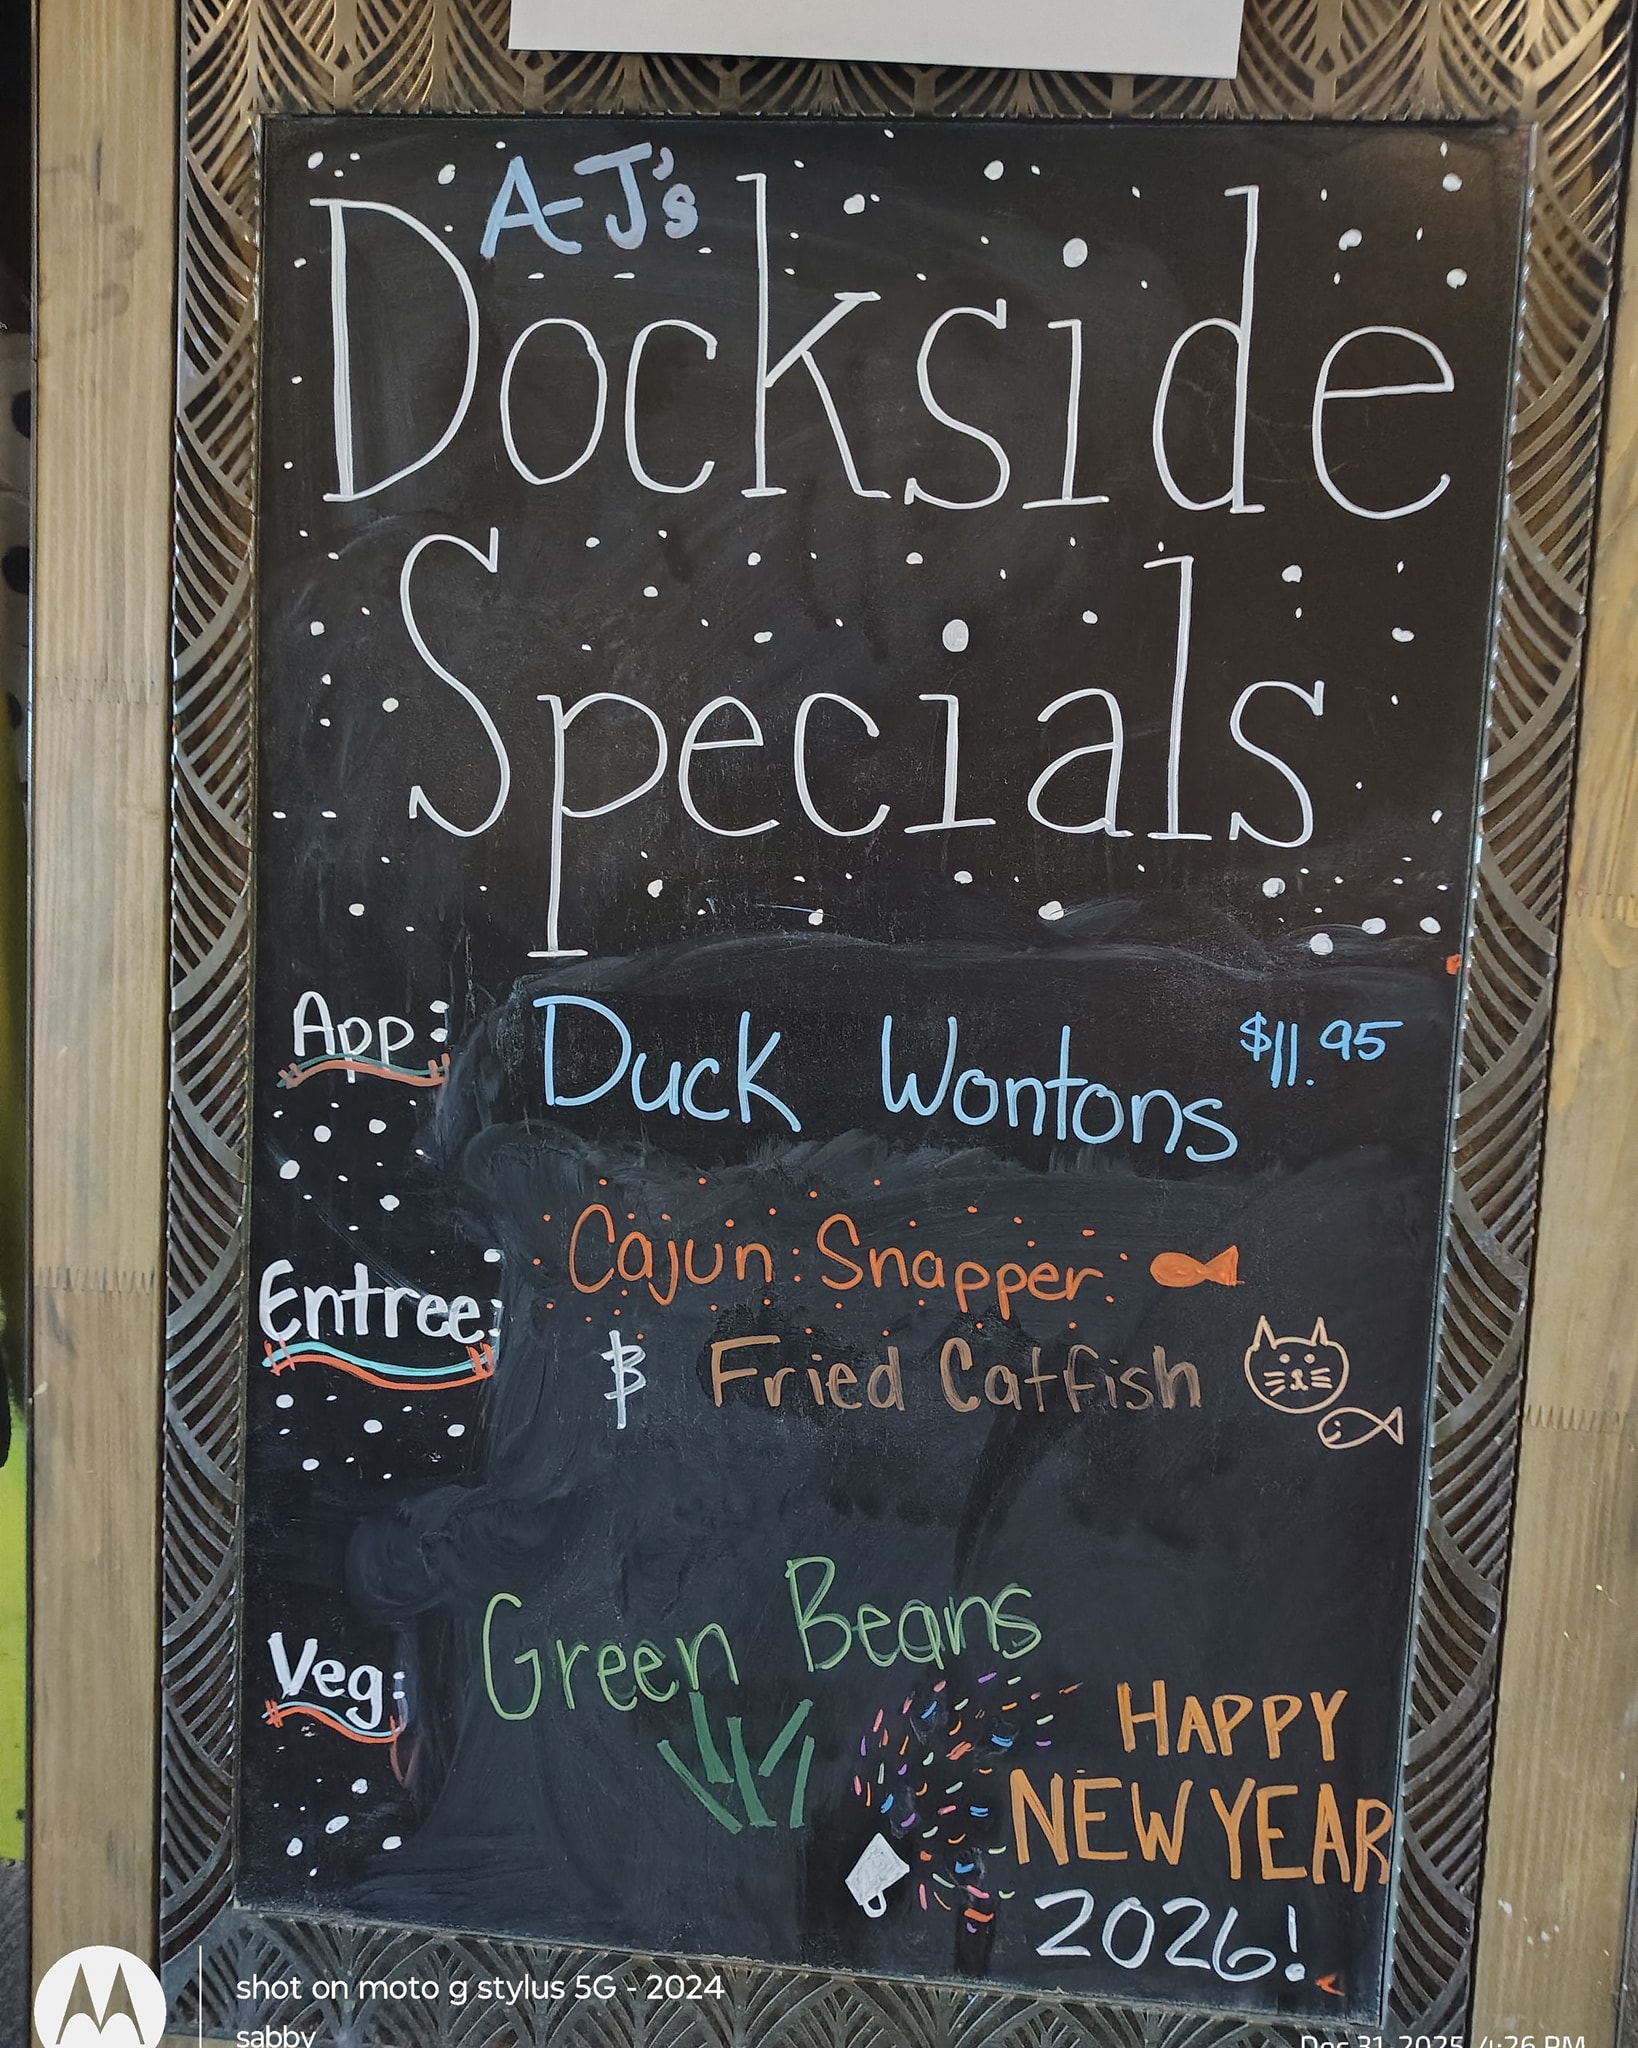 A-J's
Dockside
Specials
App: Duck Wontons $11.95
Entree: Cajun Snapper
& Fried Catfish
Veg: Green Beans
HAPPY
NEW YEAR
2026!
shot on moto g stylus 5G - 2024
sabby
Dec 31, 2025, 4:26 PM